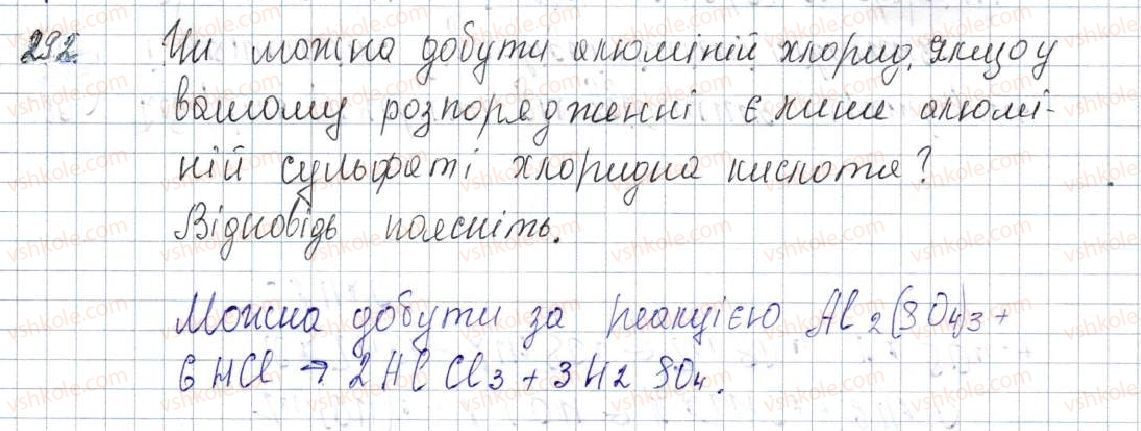 292. Чи можна добути алюміній хлорид, якщо у
вашому розпорядженні є лише алюмі-
ній сульфат і хлоридна кислота?
Відповідь поясніть.
Можна добути за реакцією Al2(SO4)3 +
6HCl → 2AlCl3 + 3H2SO4.